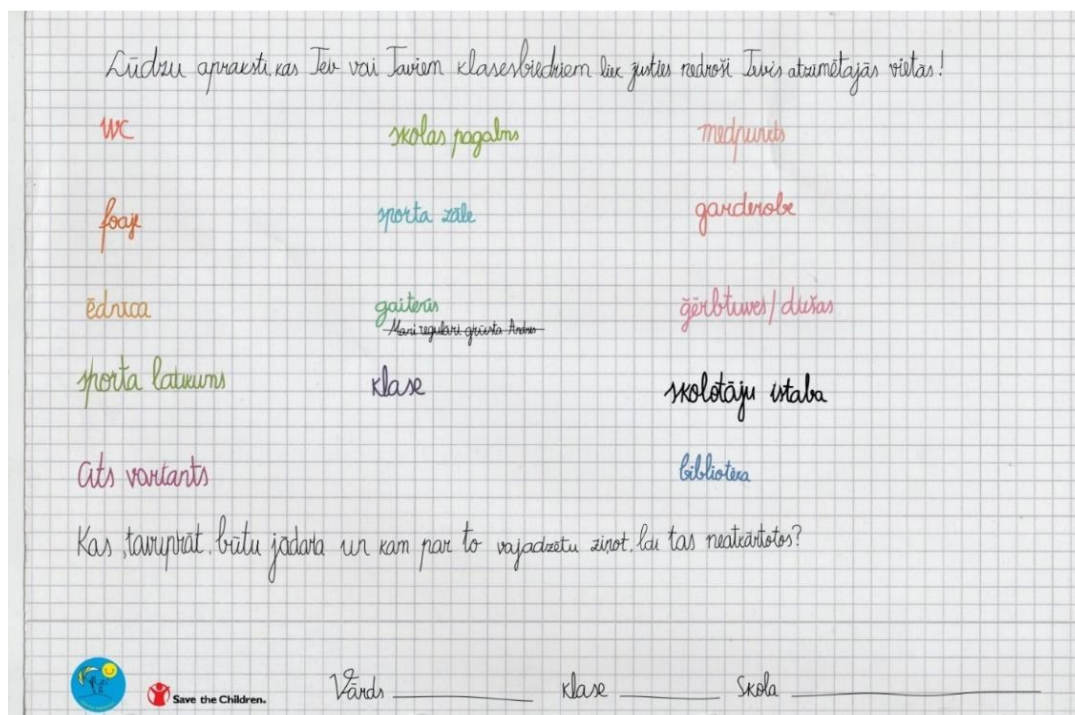 Lūdzu apraksti, kas Tev vai Taviem klasesbiedriem liek justies nedroši Tevis atzīmētajās vietās!
WC skolas pagalms medpunkts
foajē sporta zāle garderobe
ēdnīca gaitenis ģērbtuves/dušas
Mani regulāri grūsta Andris
sporta laukums klase skolotāju istaba
cits variants bibliotēka
Kas, tavuprāt, būtu jādara un kam par to vajadzētu ziņot, lai tas neatkārtotos?
Save the Children. Vārds Klase Skola